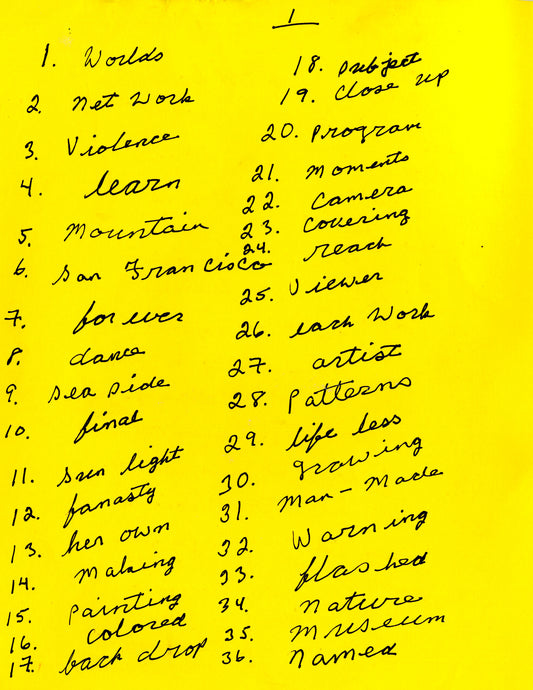 1
1. Worlds
2. Net Work
3. Violence
4. learn
5. Mountain
6. San Francisco
7. for ever
8. dance
9. sea side
10. final
11. sun light
12. fanasty
13. her own
14. making
15. painting
16. colored
17. back drop
18. subject
19. close up
20. program
21. moments
22. camera
23. covering
24. reach
25. Viewer
26. each Work
27. artist
28. patterns
29. life less
30. growing
31. Man-Made
32. Warning
33. flashed
34. nature
35. museum
36. Named